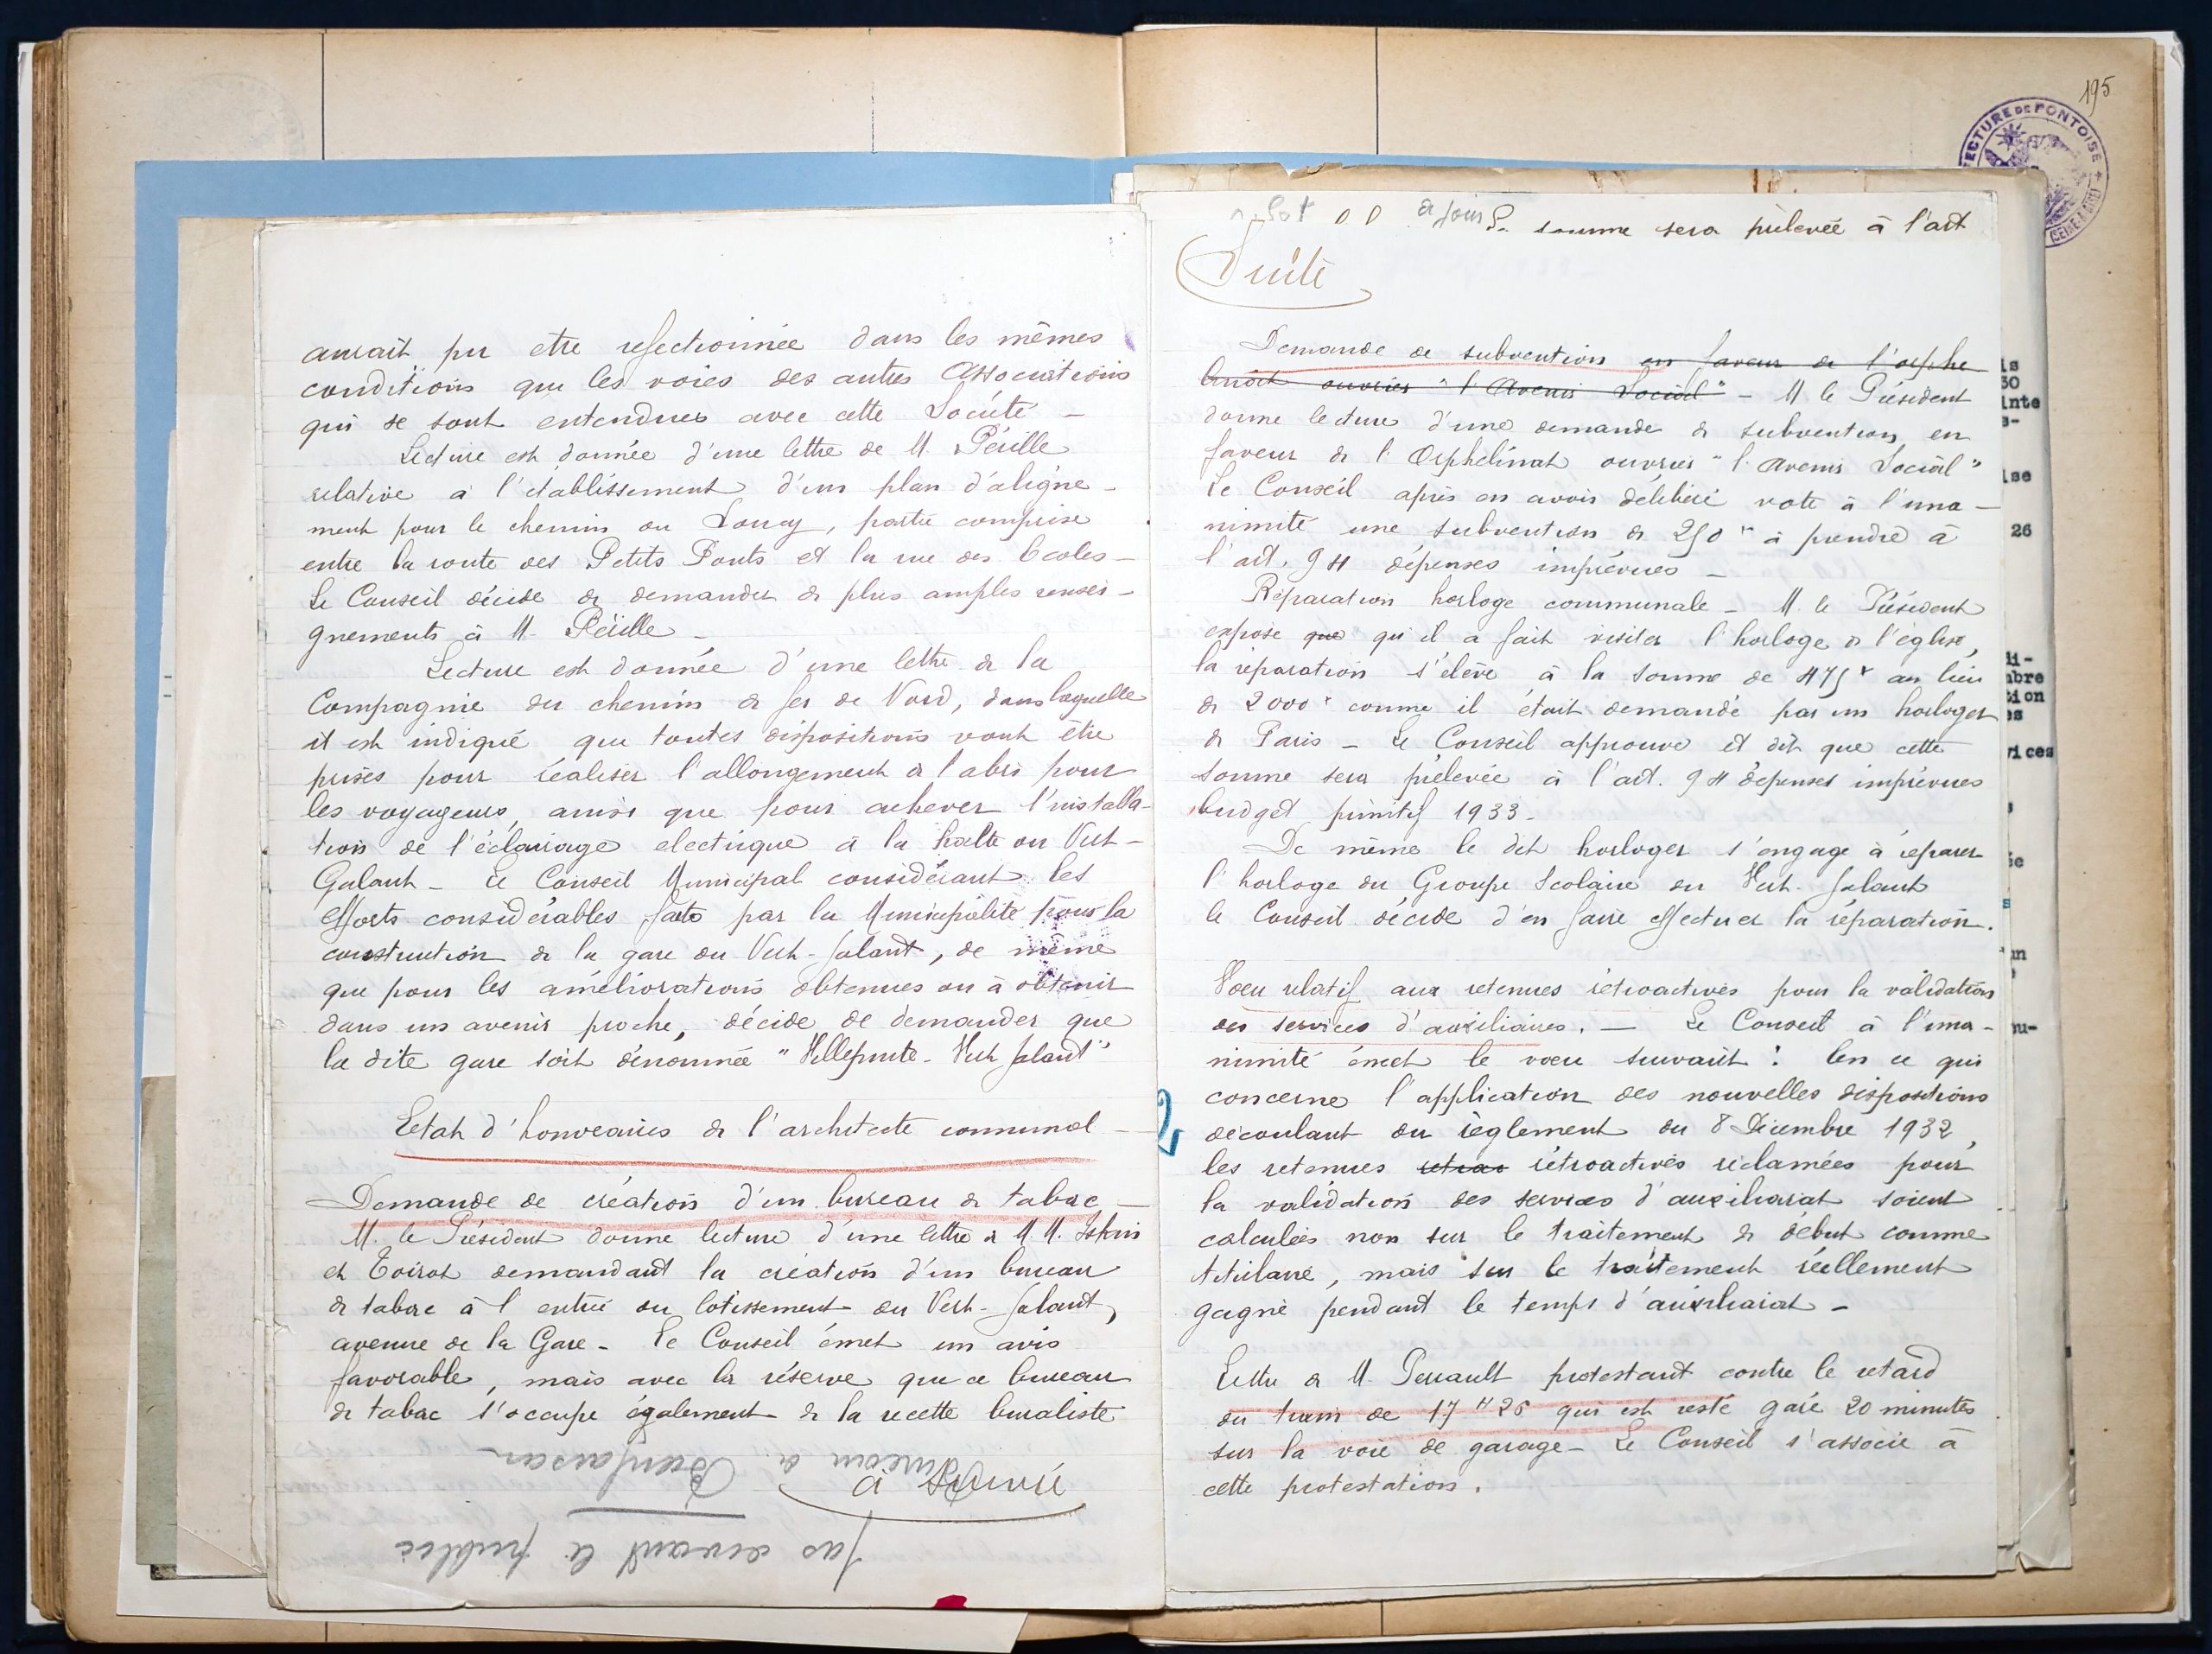 aurait pu etre refectionnée dans les mêmes
conditions que les voies des autres Associations
qui se sont entendues avec cette Société -
Lecture est donnée d'une lettre de M. Péville
relative à l'établissement d'un plan d'aligne-
ment pour le chemin du Loucy, partie comprise
entre la route des Petits Ponts et la rue des Ecoles -
Le Conseil décide de demander de plus amples rensei-
gnements à M.
Lecture est donnée d'une lettre de la
Compagnie du chemin de fer de Nord, dans laquelle
il est indiqué que toutes dispositions vont être
prises pour réaliser l'allongement de l'abri pour
les voyageurs, ainsi que pour achever l'installa-
tion de l'éclairage electrique à la halte du Vert-
Galant - Le Conseil Municipal considérant les
efforts considérables faits par la Municipalité pour la
construction de la gare du Vert-Galant, de même
que pour les améliorations obtenues ou à obtenir
dans un avenir proche, décide de demander que
la dite gare soit dénommée "Villepinte-Vert Galant"
Etat d'honoraires de l'architecte communal -
Demande de création d'un bureau de tabac -
M. le Président donne lecture d'une lettre de M.M.
et Toirot demandant la création d'un bureau
de tabac à l'entrée du lotissement du Vert-Galant,
avenue de la Gare - Le Conseil émet un avis
favorable, mais avec la réserve que ce bureau
de tabac s'occupe également de la recette buraliste
à Suivre
Bureau de Bienfaisance
pas devant le public
195
ECTURE DE PONTOISE
à jour La somme sera prélevée à l'art
Suite
Demande de subvention en faveur de l'orphe
linat ouvrier "l'Avenir Social" - M le Président
donne lecture d'une demande de subvention, en
faveur de l'Orphelinat ouvrier "l'Avenir Social"
Le Conseil après en avoir délibéré vote à l'una-
nimité une subvention de 250 frs à prendre à
l'art. 94 dépenses imprévues -
Réparation horloge communale - M. le Président
expose que qu'il a fait visiter l'horloge de l'église,
la réparation s'élève à la somme de 475 f au lieu
de 2000 f comme il était demandé par un horloger
de Paris - Le Conseil approuve et dit que cette
somme sera prélevée à l'art. 94 dépenses imprévues
budget primitif 1933 -
De même le dit horloger s'engage à réparer
l'horloge du Groupe Scolaire du Vert-Galant
le Conseil décide d'en faire effectuer la réparation.
Voeu relatif aux retenues rétroactives pour la validation
des services d'auxiliaires. - Le Conseil à l'una-
nimité émet le voeu suivant : En ce qui
concerne l'application des nouvelles dispositions
découlant du règlement du 8 Décembre 1932,
les retenues retroa rétroactives réclamées pour
la validation des services d'auxiliariat soient
calculées non sur le traitement de début comme
titulaire, mais sur le traitement réellement
gagné pendant le temps d'auxiliariat -
Lettre de M. Perrault protestant contre le retard
du train de 17 H 26 qui est resté garé 20 minutes
sur la voie de garage - Le Conseil s'associe à
cette protestation.
2
is
30
inte
s-
ise
26
di-
mbre
tion
es
rices
nu-